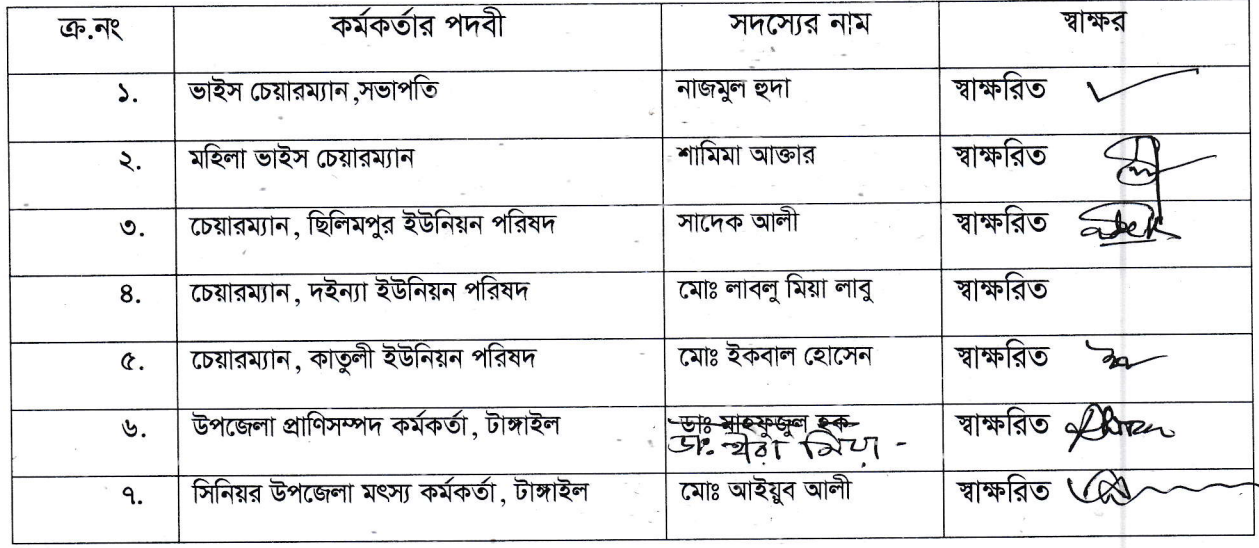 ক্র.নং কর্মকর্তার পদবী সদস্যের নাম স্বাক্ষর
১. ভাইস চেয়ারম্যান,সভাপতি নাজমুল হুদা স্বাক্ষরিত
২. মহিলা ভাইস চেয়ারম্যান শামিমা আক্তার স্বাক্ষরিত
৩. চেয়ারম্যান, ছিলিমপুর ইউনিয়ন পরিষদ সাদেক আলী স্বাক্ষরিত
৪. চেয়ারম্যান, দইন্যা ইউনিয়ন পরিষদ মোঃ লাবলু মিয়া লাবু স্বাক্ষরিত
৫. চেয়ারম্যান, কাতুলী ইউনিয়ন পরিষদ মোঃ ইকবাল হোসেন স্বাক্ষরিত
৬. উপজেলা প্রাণিসম্পদ কর্মকর্তা, টাঙ্গাইল ডাঃ মাহফুজুল হক স্বাক্ষরিত
ডা. মিয়া -
৭. সিনিয়র উপজেলা মৎস্য কর্মকর্তা, টাঙ্গাইল মোঃ আইয়ুব আলী স্বাক্ষরিত